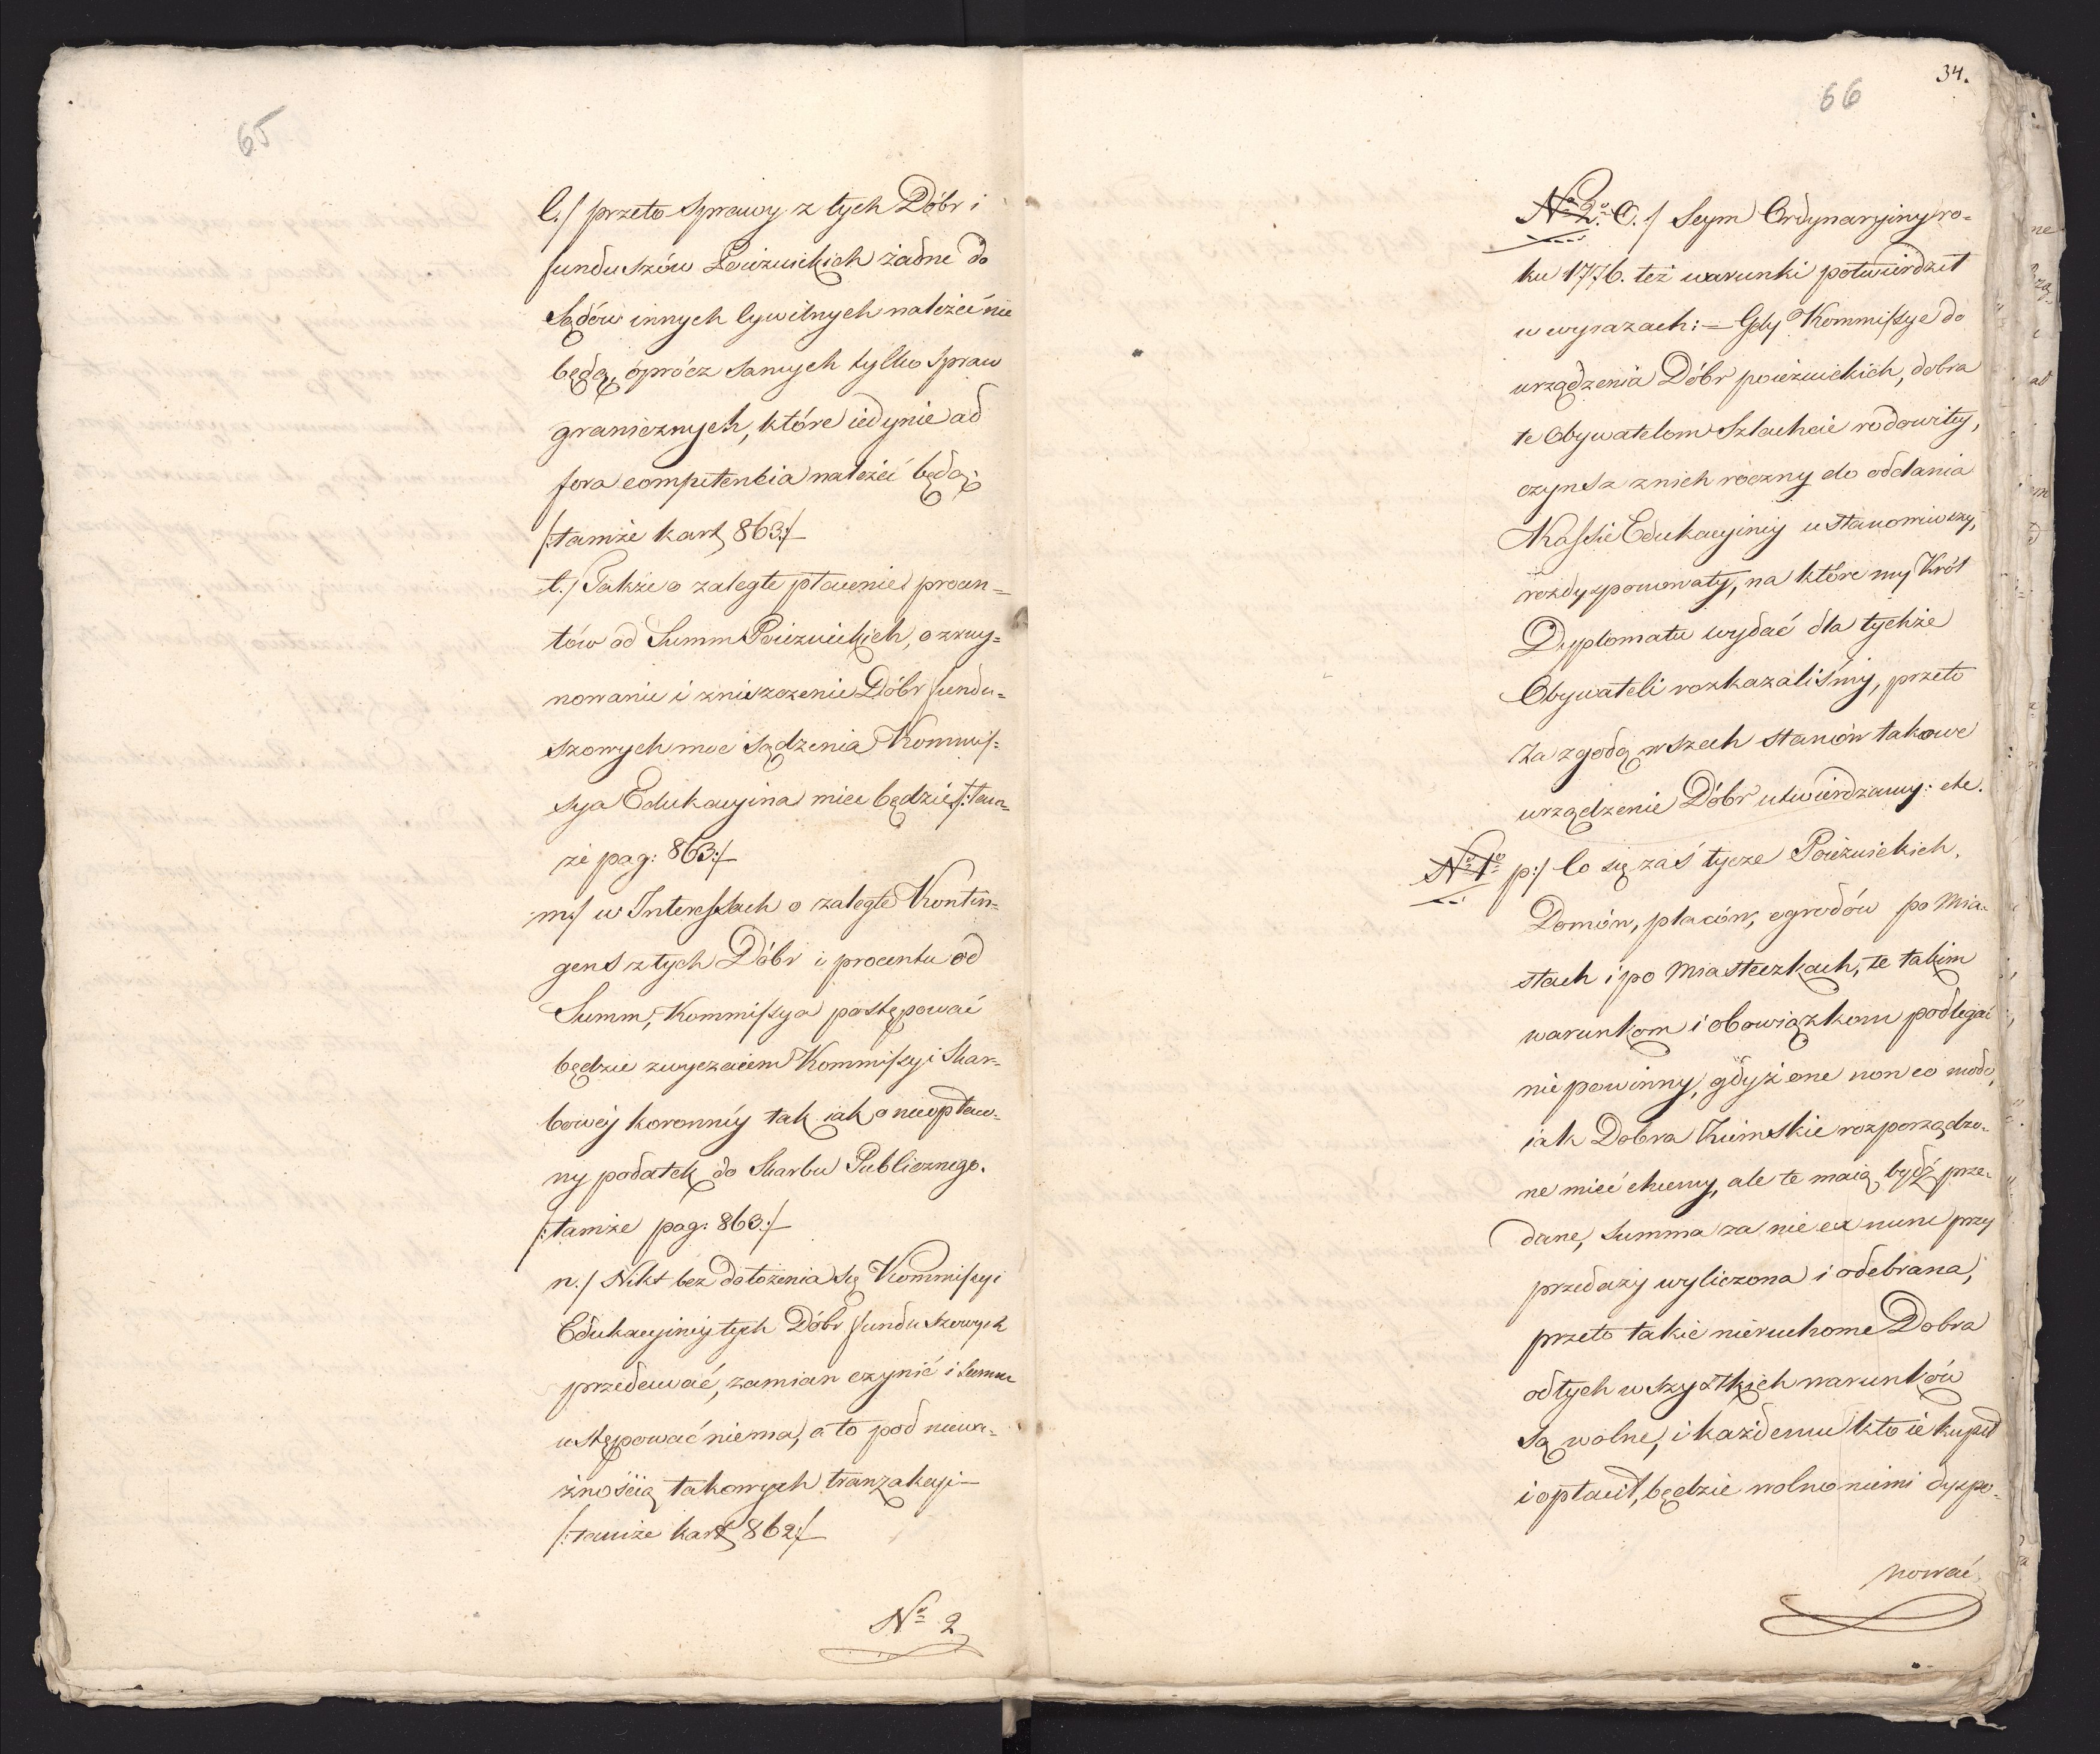 65
l./ przeto sprawy z tych Dóbr i
funduszów Poiezuickich żadne do
Sądów innych Cywilnych należeć nie
będą, óprócz samych tylko spraw
granicznych, które iedynie ad
fora competentia należeć będą;
/:tamże kart 863:/
ł./ Także o zaległe płacenie procen=
tów od Summ Poiezuickich, o zruy=
nowanie i zniszczenie Dóbr fundu=
szowych moc sądzenia Kommis=
sya Edukacyina miec będzie /:tam=
że pag: 863:/
m:/ w Interessach o zaległe Kontin=
gens z tych Dóbr i procentu od
Summ, Kommissya postępować
będzie zwyczaiem Kommissyi Skar=
bowéj koronnéy tak iak o nieopłaco=
ny podatek do Skarbu Publicznego.
/:tamże pag: 863:/
n./ Nikt bez dołożenia się Kommissyi
Edukacyinéy tych Dóbr funduszowych
przedawać, zamian czynić i Summ
ustępować niema, a to pod niewa=
żnością takowych tranzakcyi—
/:tamże kart 862:/
No 2
34.
66
No 2o O./ Seym Ordynaryiny ro=
ku 1776. też warunki potwierdził
w wyrazach: = Gdy Kommissye do
urządzenia Dóbr poiezuickich, dobra
te Obywatelom Szlachcie rodowitéy,
czynsz z nich roczny do oddania
Kassie Edukacyinéy ustanowiwszy,
rozdysponowały, na które my Król
Dyplomata wydać dla tychże
Obywateli rozkazaliśmy, przeto
Za zgodą wszech stanów takowe
urządzenie Dóbr utwierdzamy: etc.
No 1o p:/ Co się zaś tycze Poiezuickich,
Domów, placów, ogrodów po Mia=
stach i po Miasteczkach, te takim
warunkom i obowiązkom podlegać
nie powinny, gdyż one non eo modo,
iak Dobra Ziemskie rozporządzo=
ne mieć chcemy, ale te maią bydź prze=
dane, Summa za nie ex nunc przy
przedaży wyliczona i odebrana,
przeto takie nieruchome Dobra
od tych wszystkich warunków
Są wolne, i każdemu kto ie kupił
i opłacił, będzie wolno niemi dyspo=
nować